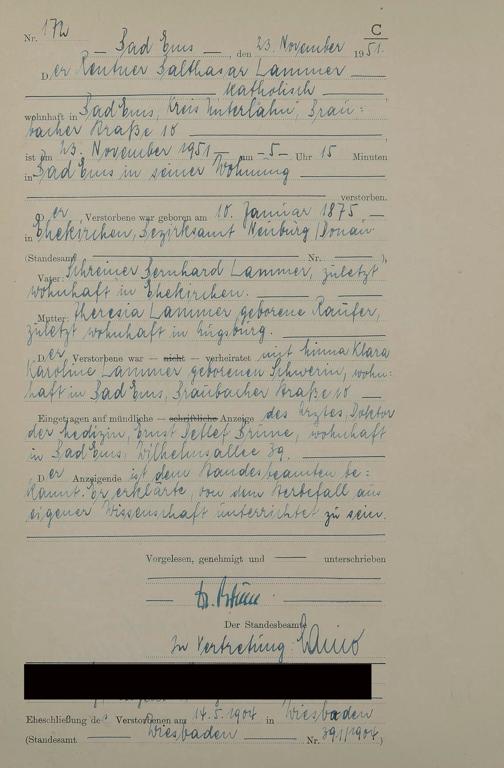 C
Nr. 172
Bad Ems, den 23. November 1951.
Der Rentner Balthasar Lammer
katholisch
wohnhaft in Bad Ems, Kreis Unterlahn, Brau=
bacher Straße 18
ist am 23. November 1951 um 5 Uhr 15 Minuten
in Bad Ems in seiner Wohnung
verstorben.
Der Verstorbene war geboren am 10. Januar 1875
in Ehekirchen, Bezirksamt Neuburg/Donau
(Standesamt Nr. ),
Vater: Schreiner Bernhard Lammer, zuletzt
wohnhaft in Ehekirchen.
Mutter: Theresia Lammer geborene Raufer,
zuletzt wohnhaft in Augsburg.
Der Verstorbene war — nicht — verheiratet mit Minna Klara
Karoline Lammer geborenen Schwerin, wohn=
haft in Bad Ems, Braubacher Straße 18
Eingetragen auf mündliche — schriftliche Anzeige des Arztes, Doktor
der Medizin, Ernst Detlef Brüne, wohnhaft
in Bad Ems, Wilhelmsallee 39.
Der Anzeigende ist dem Standesbeamten be=
kannt. Er erklärte, von dem Sterbefall aus
eigener Wissenschaft unterrichtet zu sein.
Vorgelesen, genehmigt und unterschrieben
Dr. Brüne
Der Standesbeamte
In Vertretung:
Eheschließung des Verstorbenen am 14.5.1904 in Wiesbaden
(Standesamt Wiesbaden Nr. 391/1904)